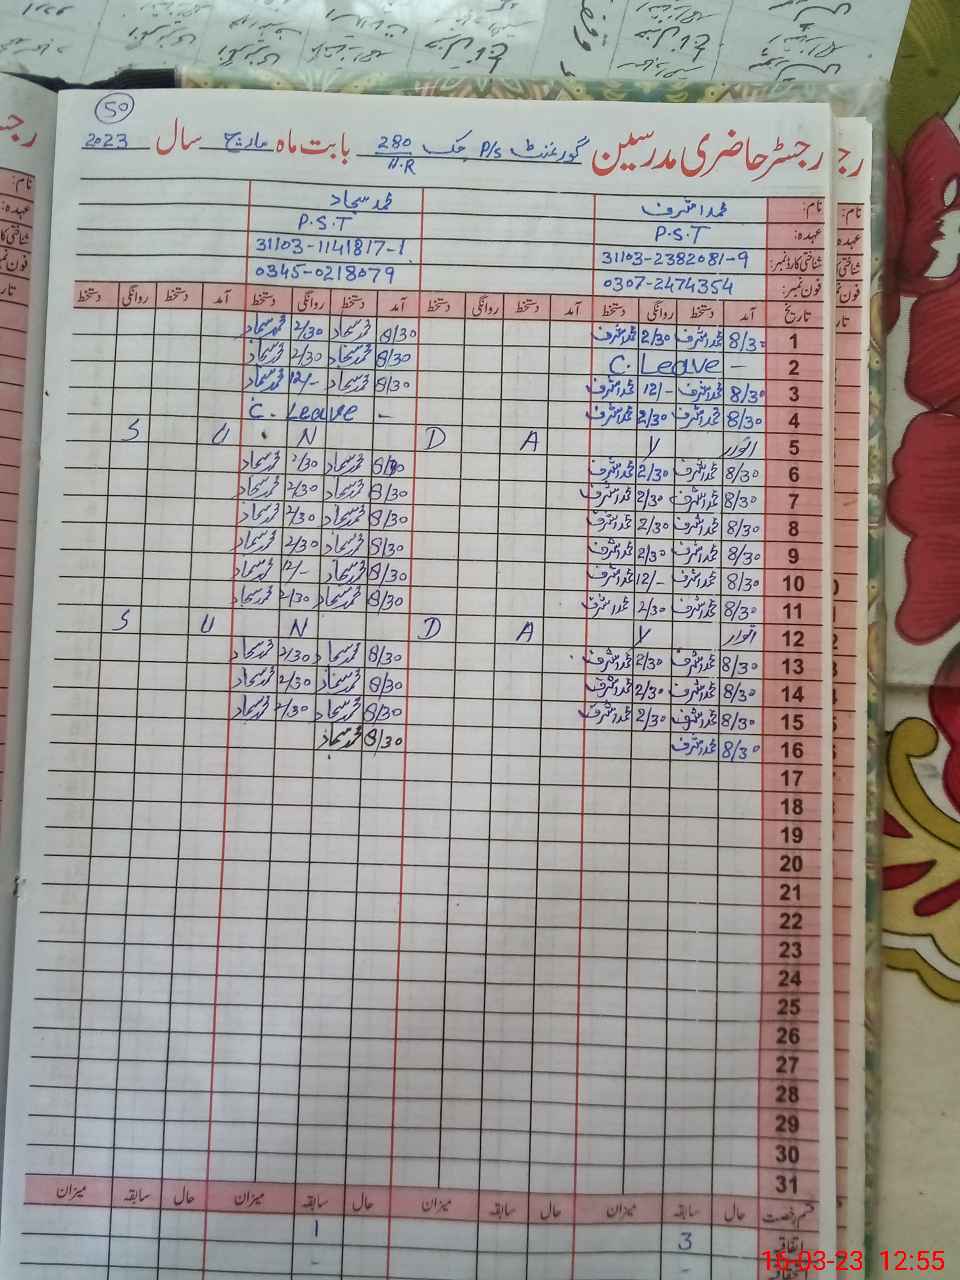 50
رجسٹر حاضری مدرسین گورنمنٹ P/S چک 280/H.R بابت ماہ مارچ سال 2023
نام: محمد اشرف محمد سجاد
عہدہ: P.S.T P.S.T
شناختی کارڈ نمبر: 31103-2382081-9 31103-1141817-1
فون نمبر: 0307-2474354 0345-0218079
تاریخ آمد دستخط روانگی دستخط آمد دستخط روانگی دستخط آمد دستخط روانگی دستخط آمد دستخط روانگی دستخط
1 8/30 محمد اشرف 2/30 محمد اشرف 8/30 محمد سجاد 2/30 محمد سجاد
2 - C. Leave 8/30 محمد سجاد 2/30 محمد سجاد
3 8/30 محمد اشرف 12/- محمد اشرف 8/30 محمد سجاد 12/- محمد سجاد
4 8/30 محمد اشرف 2/30 محمد اشرف - C. Leave
5 اتوار S U N D A Y
6 8/30 محمد اشرف 2/30 محمد اشرف 8/30 محمد سجاد 2/30 محمد سجاد
7 8/30 محمد اشرف 2/30 محمد اشرف 8/30 محمد سجاد 2/30 محمد سجاد
8 8/30 محمد اشرف 2/30 محمد اشرف 8/30 محمد سجاد 2/30 محمد سجاد
9 8/30 محمد اشرف 2/30 محمد اشرف 8/30 محمد سجاد 2/30 محمد سجاد
10 8/30 محمد اشرف 12/- محمد اشرف 8/30 محمد سجاد 12/- محمد سجاد
11 8/30 محمد اشرف 2/30 محمد اشرف 8/30 محمد سجاد 2/30 محمد سجاد
12 اتوار S U N D A Y
13 8/30 محمد اشرف 2/30 محمد اشرف 8/30 محمد سجاد 2/30 محمد سجاد
14 8/30 محمد اشرف 2/30 محمد اشرف 8/30 محمد سجاد 2/30 محمد سجاد
15 8/30 محمد اشرف 2/30 محمد اشرف 8/30 محمد سجاد 2/30 محمد سجاد
16 8/30 محمد اشرف 8/30 محمد سجاد
17
18
19
20
21
22
23
24
25
26
27
28
29
30
31
قسم رخصت حال سابقہ میزان حال سابقہ میزان حال سابقہ میزان حال سابقہ میزان
اتفاقیہ 3 1
16-03-23 12:55